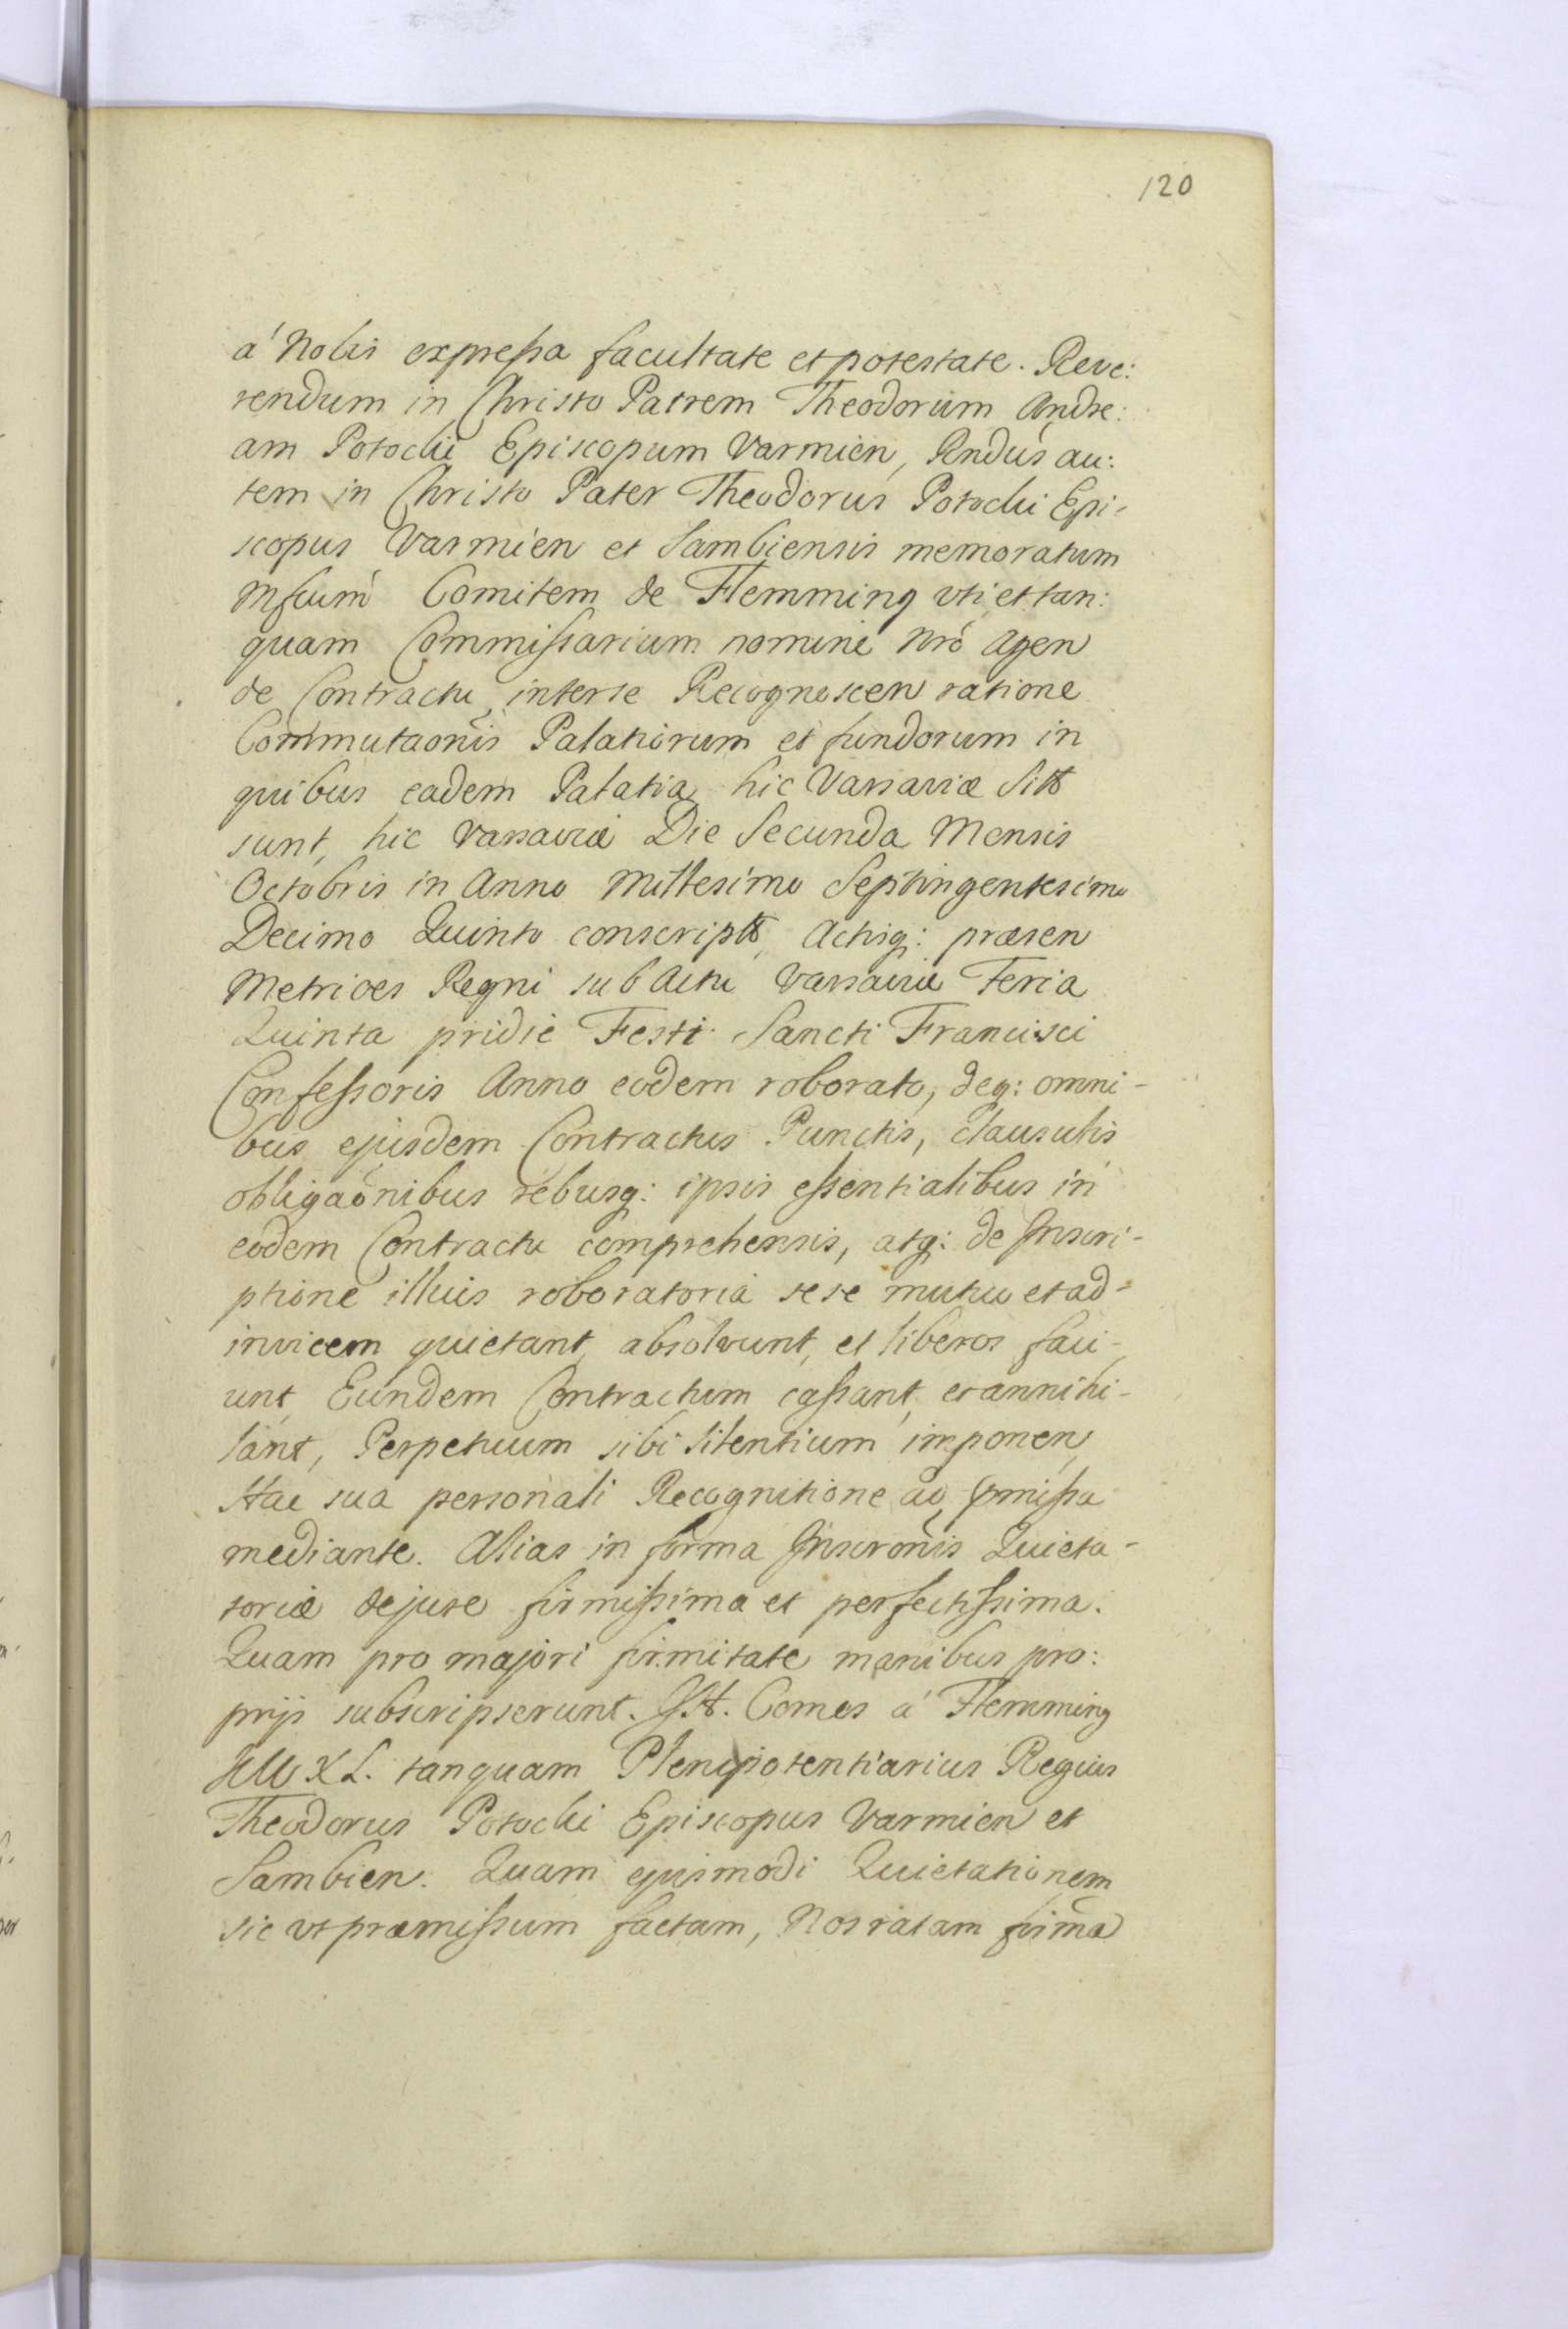 120
á Nobis expressa facultate et potestate. Reve:
rendum in Christo Patrem Theodorum Andre:
am Potocki Episcopum Varmien, Rndus au:
tem in Christo Pater Theodorus Potocki Epi-
scopus Varmien et Sambiensis memoratum
Mfcum Comitem de Flemming uti et tan:
quam Commissarium nomine Nrô Agen
de Contractu interse Recognoscen ratione
Commutaonis Palatiorum et fundorum in
quibus eadem Palatia hic Varsaviæ Sitt
sunt, hic Varsaviæ Die Secunda Mensis
Octobris in Anno Millesimo Septingentesimo
Decimo Quinto conscriptt, Actisq: præsen
Metrices Regni sub Actu Varsaviæ Feria
Quinta pridie Festi Sancti Francisci
Confessoris Anno eodem roborato, deq: omni-
bus ejusdem Contractus Punctis, clausulis
obligaõnibus rebusq: ipsis essentialibus in
eodem Contractu comprehensis, atq: de Inscri-
ptione illius roboratoria sese mutuo et ad-
invicem quietant, absolvunt, et liberos faci-
unt Eundem Contractum cassant, et annihi-
lant, Perpetuum sibi silentium imponen,
Hac sua personali Recognitione ac pmissa
mediante. Alias in forma Inscronis Quieta-
toriæ de jure firmissima et perfectissima.
Quam pro majori firmitate manibus pro:
prijs subscripserunt. J.H. Comes á Flemming
WXL. tanquam Plenipotentiarius Regius
Theodorus Potocki Episcopus Varmien et
Sambien. Quam ejusmodi Quietationem
sic ut præmissum factam, Nos ratam firma